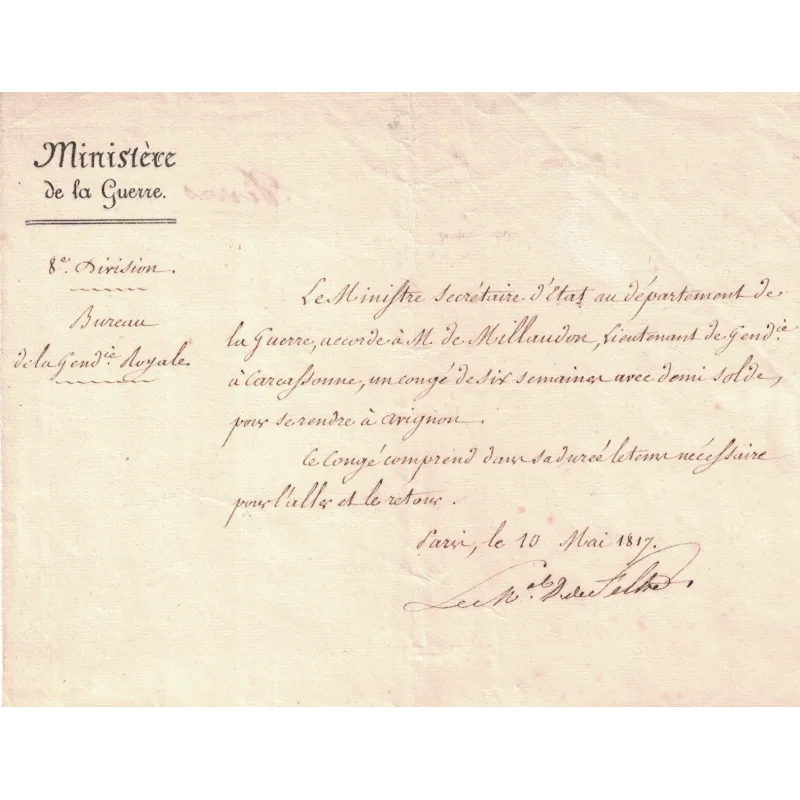 Ministère
de la Guerre.
8e. Division.
Bureau
de la Gendie Royale
Le Ministre secrétaire d'Etat au département de
la Guerre, accorde à M. de Millaudon, Lieutenant de Gendie.
à Carcassonne, un congé de six semaines avec demi solde,
pour se rendre à avignon.
Ce Congé comprend dans sa dureé le tems nécessaire
pour l'aller et le retour.
Paris, le 10 Mai 1817.
Le Mal. D. de Feltre.